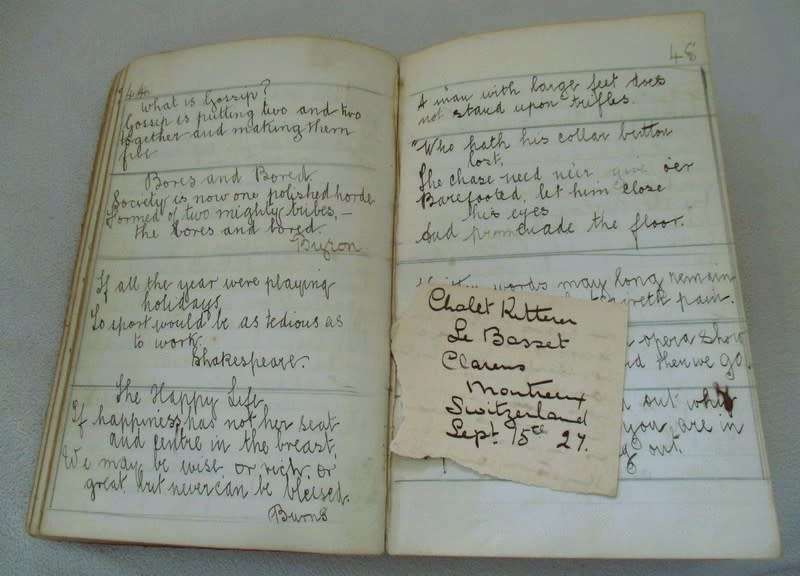 44
What is Gossip?
Gossip is putting two and two
together and making them
five
Bores and Bored
Society is now one polished horde
Formed of two mighty tribes,—
the bores and bored.
Byron
If all the year were playing
holidays,
To sport would be as tedious as
to work.
Shakespeare.
The Happy Life
If happiness has not her seat
and centre in the breast,
We may be wise or rich, or
great but never can be blessed.
Burns
48
A man with large feet does
not stand upon trifles.
"Who hath his collar button
lost,
The chase need ne'er give o'er
Barefooted, let him close
his eyes
And promenade the floor."
words may long remain
pain.
opera show
then we go.
out
you are in
out
Chalet Rutterer
Le Basset
Clarens
Montreux
Switzerland
Sept. 15th 27.